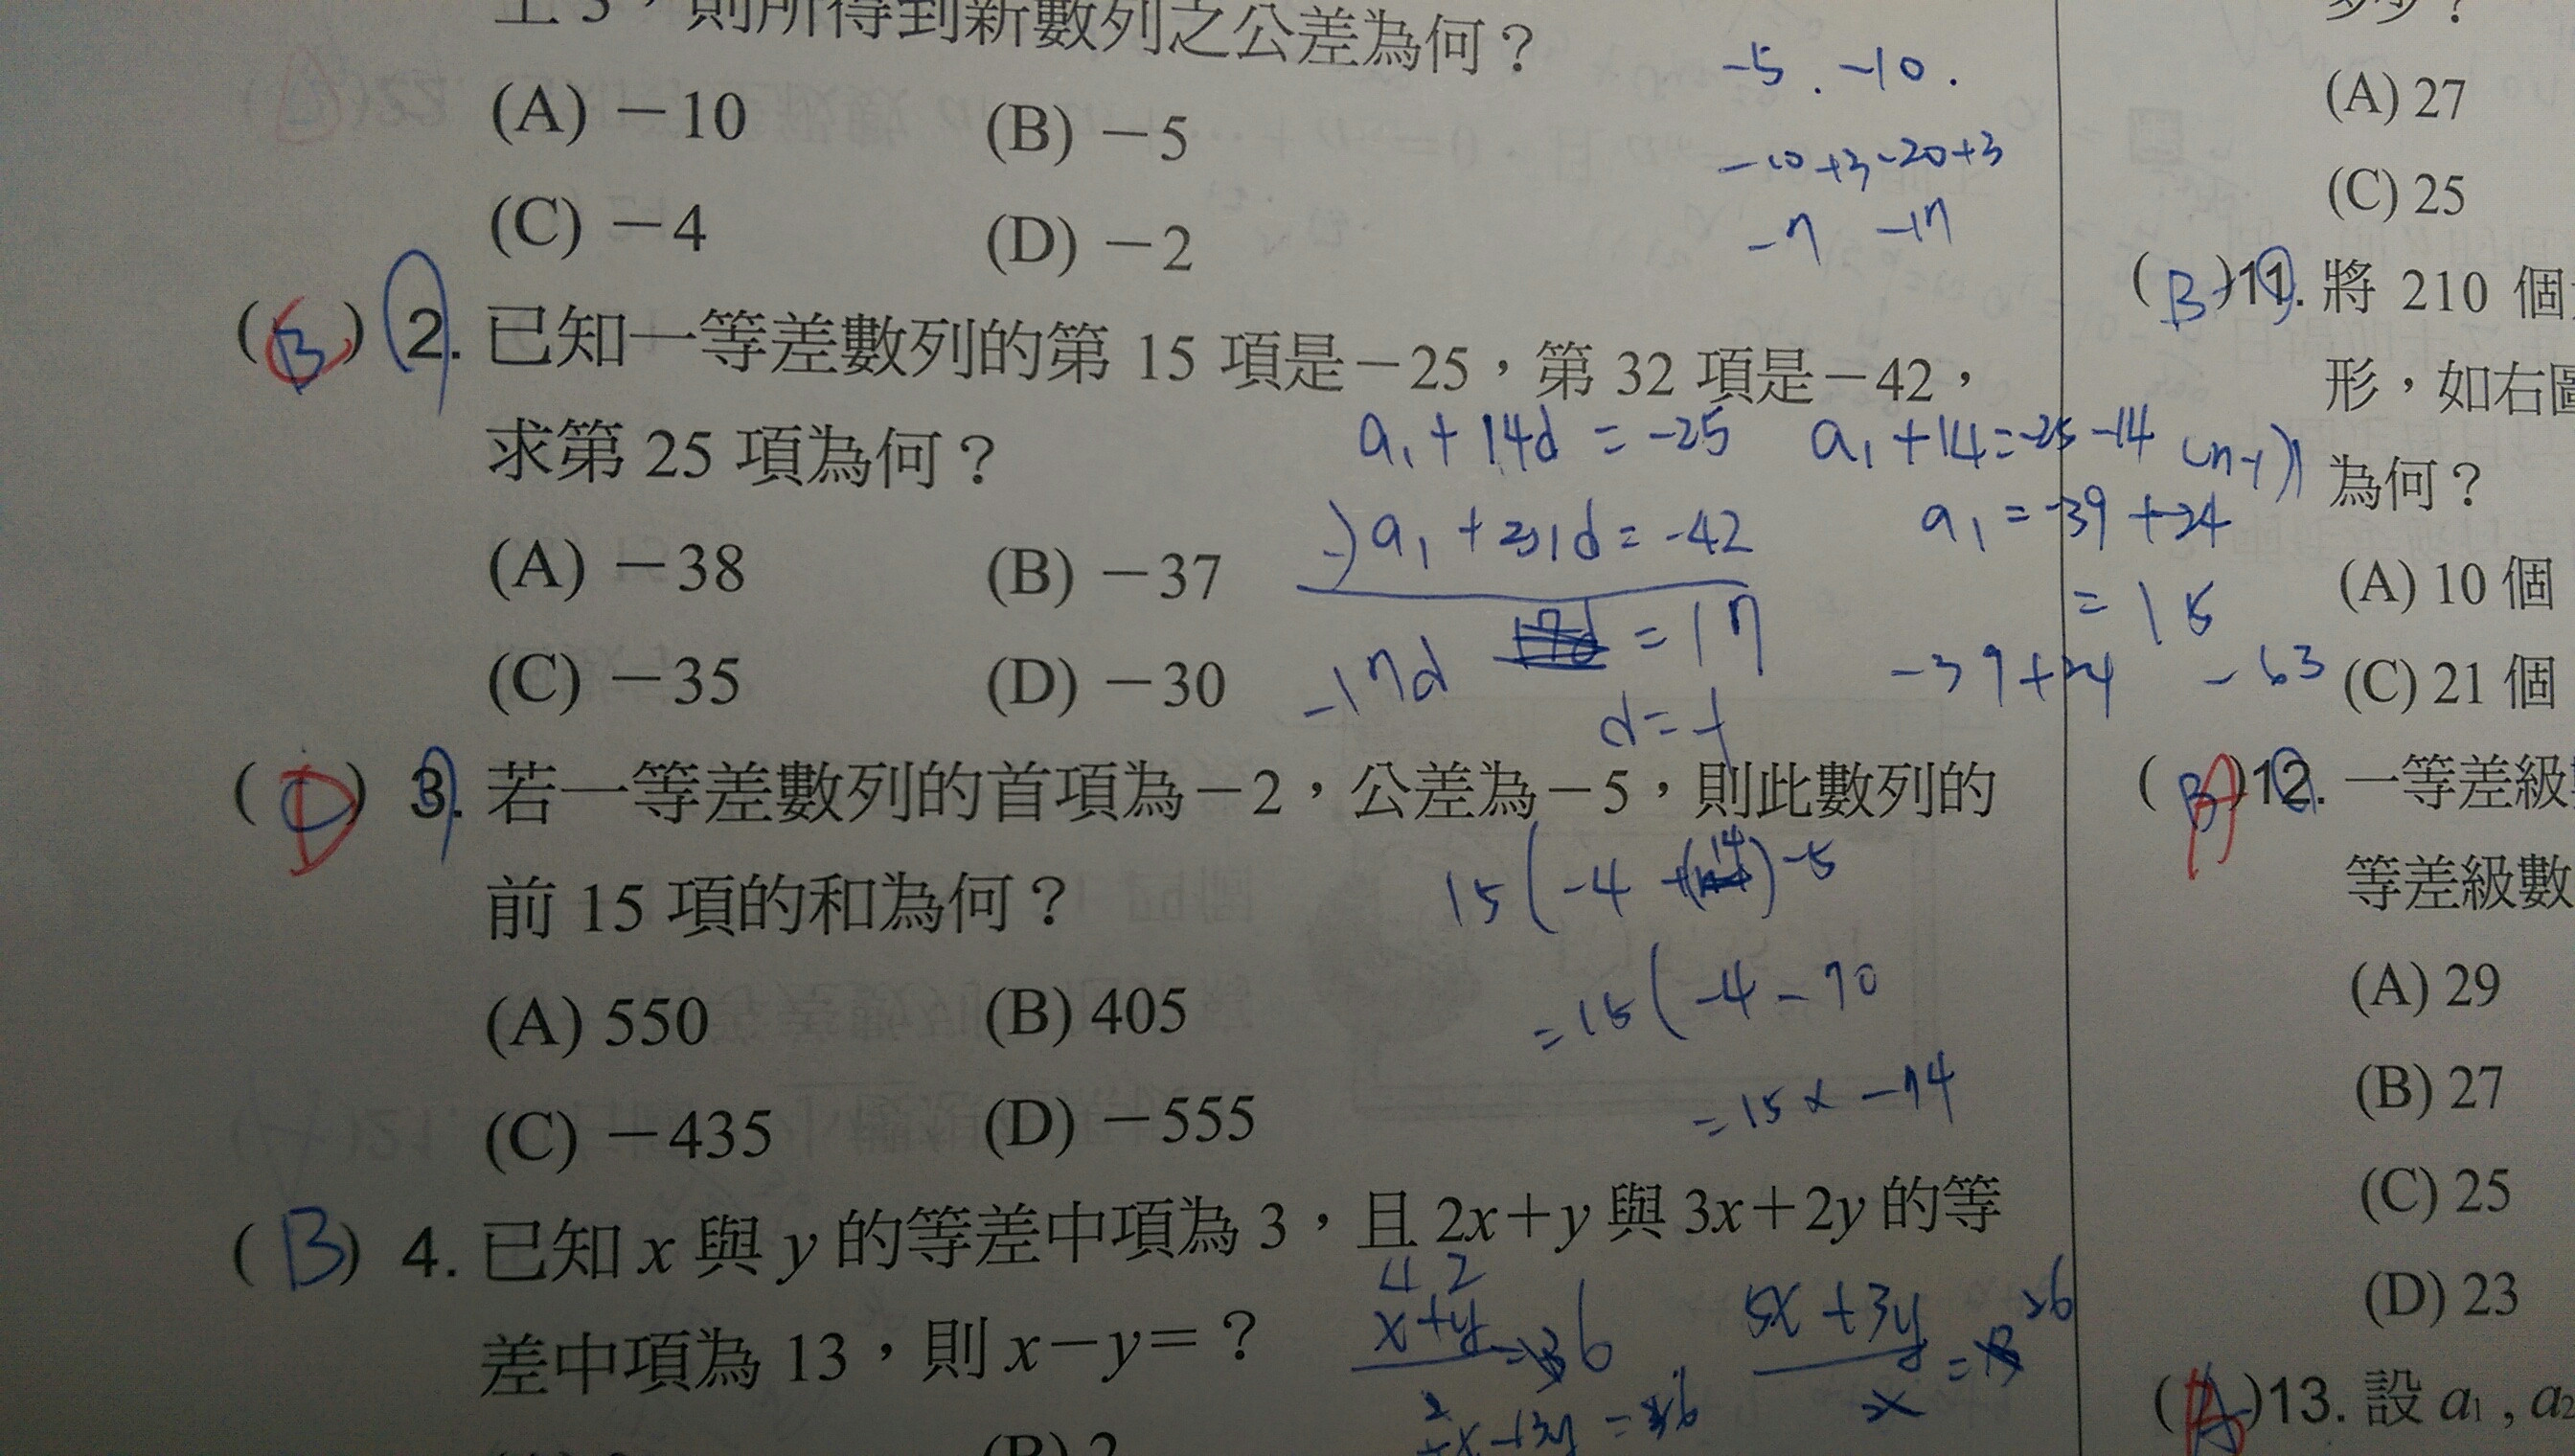 上3，則所得到新數列之公差為何？
(A) －10 (B) －5
(C) －4 (D) －2
-5 . -10 .
-10+3 -20+3
-7 -17
(B) 2. 已知一等差數列的第 15 項是－25，第 32 項是－42，
求第 25 項為何？
(A) －38 (B) －37
(C) －35 (D) －30
a₁ + 14d = -25
-) a₁ + 31d = -42
-17d = 17
d = -1
a₁ + 14 = -25 -14
(n-1)
a₁ = -39 + 24
= 15
-39+24 -63
(D) 3. 若一等差數列的首項為－2，公差為－5，則此數列的
前 15 項的和為何？
(A) 550 (B) 405
(C) －435 (D) －555
15 ( -4 + (14) -5
= 15 ( -4 - 70
= 15 x -74
(B) 4. 已知 x 與 y 的等差中項為 3，且 2x＋y 與 3x＋2y 的等
差中項為 13，則 x－y＝？
(B) 2
4 2
x+y
6
5x + 3y
2
多少？
(A) 27
(C) 25
(B) 11. 將 210 個
形，如右圖
為何？
(A) 10 個
(C) 21 個
(A) 12. 一等差級
等差級數
(A) 29
(B) 27
(C) 25
(D) 23
13. 設 a₁ , a₂